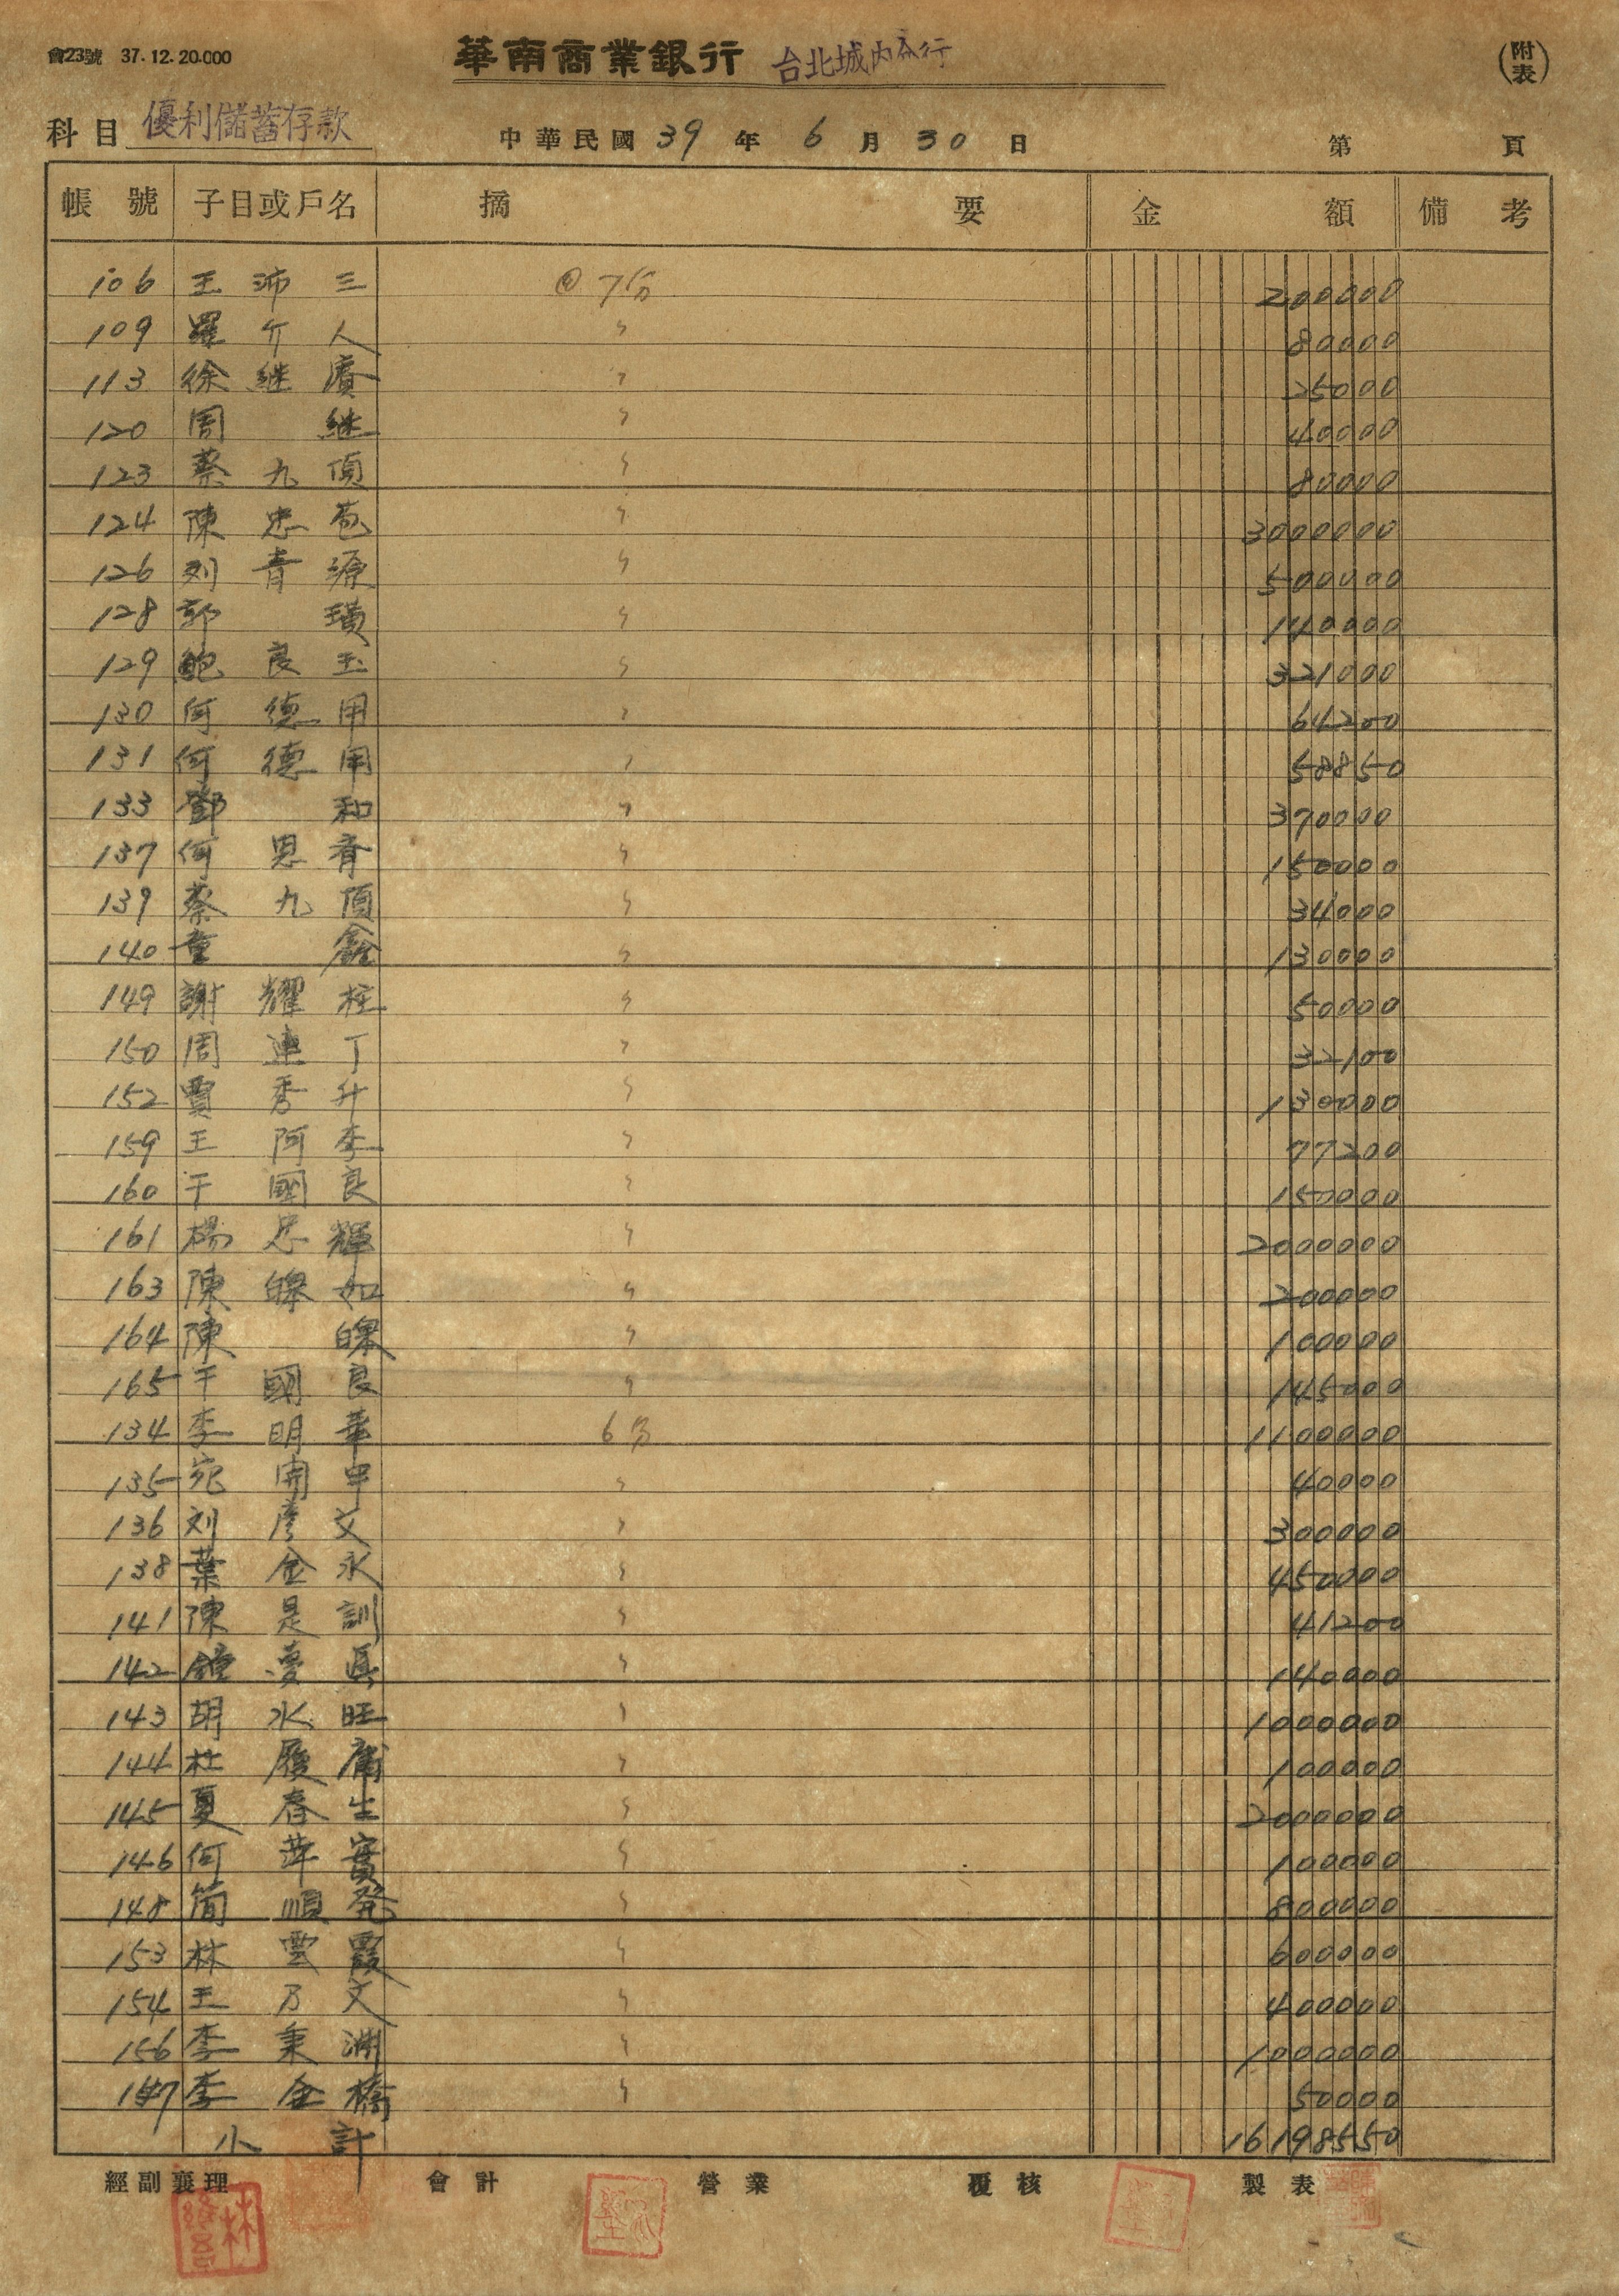 會23號 37.12.20.000
華南商業銀行 台北城內分行
(附表)
科目 優利儲蓄存款 中華民國 39 年 6 月 30 日 第 頁
帳號 子目或戶名 摘要 金額 備考
106 王沛三 @ 7分 200000
109 羅介人 〃 80000
113 徐継賡 〃 25000
120 周継 〃 40000
123 蔡九頂 〃 80000
124 陳忠苞 〃 3000000
126 刘青源 〃 500000
128 郭璜 〃 140000
129 鮑良玉 〃 321000
130 何德用 〃 64200
131 何德用 〃 58850
133 鄧和 〃 370000
137 何恩 〃 150000
139 蔡九頂 〃 34000
140 童鑫 〃 130000
149 謝耀柱 〃 50000
150 周連丁 〃 32100
152 賈秀升 〃 130000
159 王阿李 〃 77200
160 干國良 〃 150000
161 楊忠輝 〃 2000000
163 陳皞如 〃 200000
164 陳皞 〃 100000
165 干國良 〃 145000
134 李明華 6分 1100000
135 宛開甲 〃 40000
136 刘彦文 〃 300000
138 葉金永 〃 450000
141 陳是訓 〃 41200
142 鐘夢 〃 140000
143 胡水旺 〃 1000000
144 杜履庸 〃 100000
145 夏春生 〃 2000000
146 何萍實 〃 100000
148 簡順発 〃 800000
153 林雲霞 〃 600000
154 王乃文 〃 400000
156 李秉渊 〃 1000000
147 李金橋 〃 50000
小計 16198550
經副襄理 會計 營業 覆核 製表